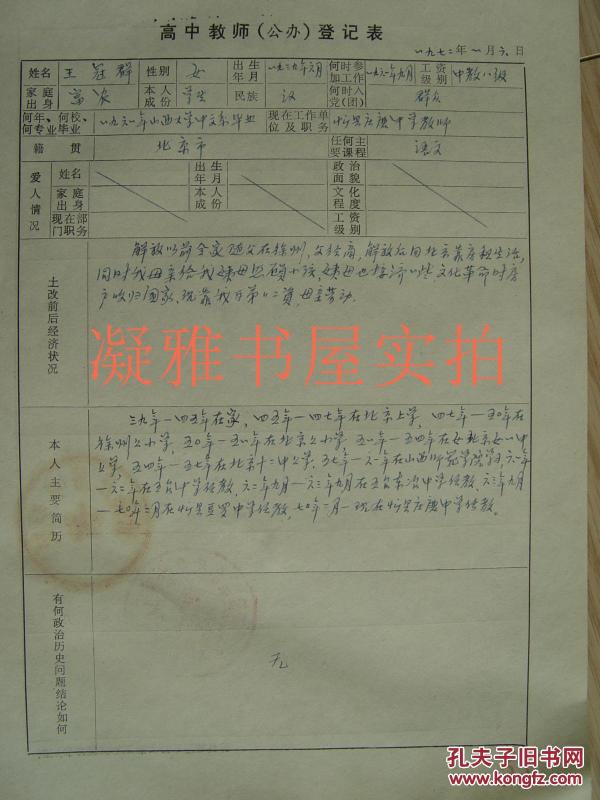 高中教师(公办)登记表
一九七二年一一月六日
姓名 王冠群 性别 女 出生年月 一九三九年六月 何时参加工作 一九六一年九月 工资级别 中教八级
家庭出身 富农 本人成份 学生 民族 汉 何时入党(团) 群众
何年、何校、何专业毕业 一九六一年山西大学中文系毕业 现在工作单位及职务 忻县庄磨中学教师
籍贯 北京市 任何主要课程 语文
爱人情况 姓名 出生年月 政治面貌
家庭出身 本人成份 文化程度
现在部门职务 工资级别
土改前后经济状况
解放以前全家随父在徐州,父经商,解放后回北京靠房租生活,
同时我母亲给我姨母照顾小孩,姨母也接济一些文化革命时房
产收归国家、现靠我 工资,母亲劳动.
凝雅书屋实拍
本人主要简历
三九年—四五年在家,四五年—四七年在北京上学,四七年—五0年在
徐州上小学,五0年—五一年在北京上小学,五一年—五四年在女北京女一中
上学,五四年—五七年在北京十二中上学,五七年—六一年在山西师 学院学习,六一年
—六二年在五台中学任教,六二年九月—六三年九月在五台东冶中学任教,六三年九月
—七0年二月在忻县豆罗中学任教,七0年二月—现在忻县庄磨中学任教。
有何政治历史问题结论如何
无
孔夫子旧书网
www.kongfz.com